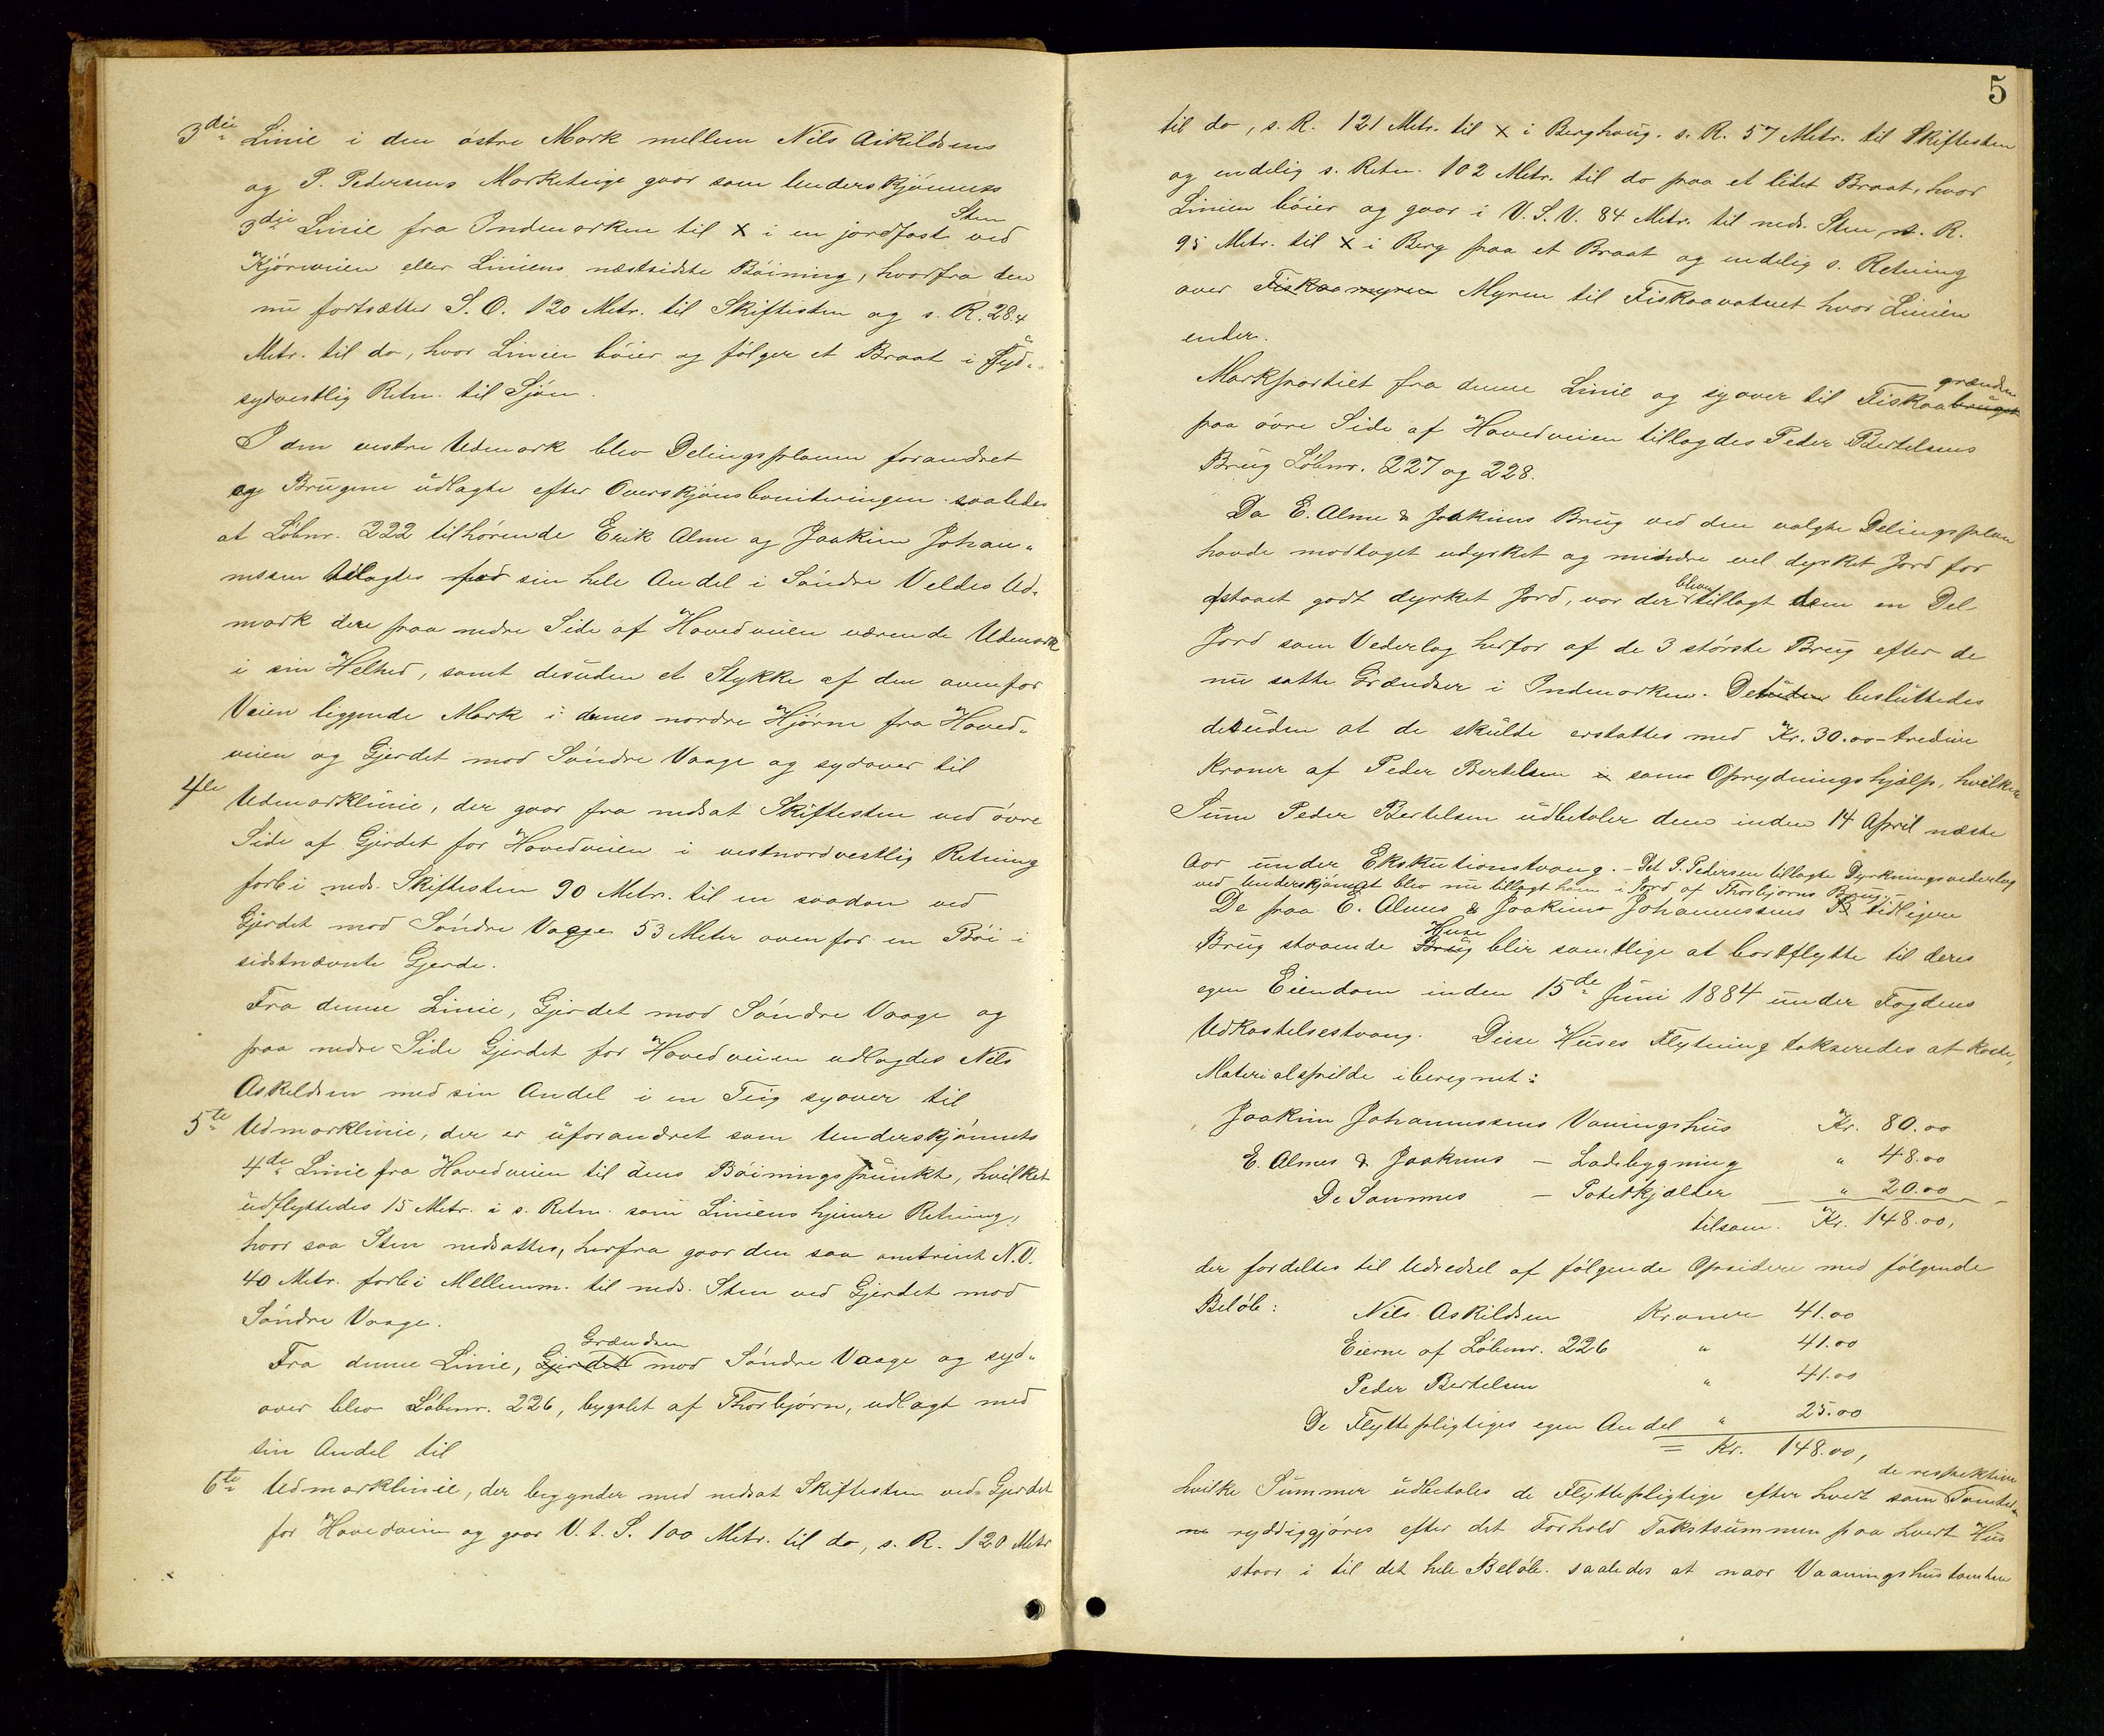 3die Linie i den østre Mark mellem Nils Askildsens
og P. Pedersens Marketeige gaar som Underskjønnets
3die Linie fra Indmarken til X i en jordfast Sten ved
Kjøreveien eller Liniens næstsidste Bøining, hvorfra den
nu fortsætter S. O. 120 Metr. til Skiftesten og s. R. 28.4
Metr. til do, hvor Linien bøier og følger et Braat i Syd-
sydvestlig Retn. til Sjøn.
I den vestre Udmark blev Delingsplanen forandret
og Brugene udlagte efter Overskjønsboniteringen saaledes
at Løbnr. 222 tilhørende Erik Alme og Joakim Johan-
nessen tillagdes for sin hele Andel i Søndre Veldes Ud-
mark den paa nedre Side af Hovedveien værende Udmark
i sin Helhed, samt desuden et Stykke af den ovenfor
Veien liggende Mark i dennes nordre Hjørne fra Hoved-
veien og Gjerdet mod Søndre Vaage og sydover til
4de Udmarklinie, der gaar fra nedsat Skiftesten ved øvre
Side af Gjerdet for Hovedveien i vestnordvestlig Retning
forbi neds. Skiftesten 90 Metr. til en saadan ved
Gjerdet mod Søndre Vaage 53 Meter ovenfor en Bøi i
sidstnævnte Gjerde.
Fra denne Linie, Gjerdet mod Søndre Vaage og
paa nedre Side Gjerdet for Hovedveien udlagdes Nils
Askildsen med sin Andel i en Teig syover til
5te Udmarklinie, der er uforandret som Underskjønnets
4de Linie fra Hovedveien til dens Bøiningspunkt, hvilket
udflyttedes 15 Metr. i s. Retn. som Liniens hjemre Retning,
hvor saa Sten nedsattes, herfra gaar den saa omtrent N.V.
40 Metr. forbi Mellemm. til neds. Sten ved Gjerdet mod
Søndre Vaage.
Fra denne Linie, Gjerdet Grændsen mod Søndre Vaage og syd-
over blev Løbnr. 226, bygslet af Thorbjørn, udlagt med
sin Andel til
6te Udmarklinie, der begynder med nedsat Skiftesten ved Gjerdet
for Hovedveien og gaar V. t. S. 100 Metr. til do, s. R. 120 Metr
5
til do, s. R. 121 Metr. til X i Berghaug. s. R. 57 Metr. til Skiftesten
og endelig s. Retn. 102 Metr. til do paa et lidet Braat, hvor
Linien bøier og gaar i V. S. V. 84 Metr. til neds. Sten s. R.
95 Metr. til X i Berg paa et Braat og endelig s. Retning
over Fiskaamyren Myren til Fiskaavatnet hvor Linien
ender.
Markpartiet fra denne Linie og syover til Fiskaabruget grændsen
paa øvre Side af Hovedveien tillagdes Peder Bertelsens
Brug Løbnr. 227 og 228.
Da E. Alme & Joakims Brug ved den valgte Delingsplan
havde modtaget udyrket og mindre vel dyrket Jord for
afstaaet godt dyrket Jord, var der bleven tillagt dem en Del
Jord som Vederlag herfor af de 3 største Brug efter de
nu satte Grændser i Indmarken. Desuden besluttedes
desuden at de skulde erstattes med Kr. 30.00 - tredive
Kroner af Peder Bertelsen i som Oprydningshjælp, hvilken
Sum Peder Bertelsen udbetaler dem inden 14 April næste
Aar under Ekskutionstvang. - Det P. Pedersen tillagte Dyrkningsvederlag
ved Underskjønnet blev nu tillagt ham i Jord af Thorbjørns Brug.
De paa E. Almes & Joakims Johannessens tidligere
Brug staaende Brug Huse blir samtlige at bortflytte til deres
egen Eiendom inden 15de Juni 1884 under Fogdens
Udkastelsestvang. Disse Huses Flytning takseredes at koste,
Materialspilde iberegnet:
Joakim Johannessens Vaaningshus Kr. 80.00
E. Almes & Joakims - Ladebygning " 48.00
De Sammes - Potetkjælder " 20.00
tilsam. Kr. 148.00,
der fordeltes til Udredsel af følgende Opsidere med følgende
Beløb: Nils Askildsen Kroner 41.00
Eierne af Løbenr. 226 " 41.00
Peder Bertelsen " 41.00
De Flyttepligtiges egen Andel " 25.00
= Kr. 148.00,
hvilke Summer udbetales de Flyttepligtige efter hvert som de respektive Tomter
ne ryddiggjøres efter det Forhold Takstsummen paa hvert Hus
staar i til det hele Beløb. saaledes at naar Vaaningshustomten